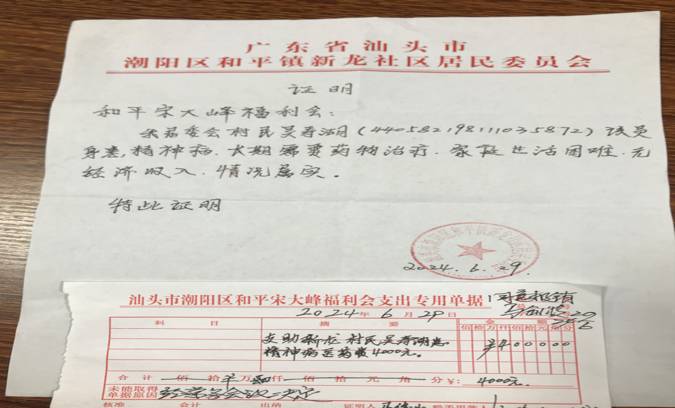 广东省汕头市
潮阳区和平镇新龙社区居民委员会
证明
和平宋大峰福利会:
居委会村民吴 湖(440582198111035872)该员
身患精神病.长期需要药物治疗.家庭生活困难.无
经济收入.情况属实。
特此证明
2024.6.29.
汕头市潮阳区和平宋大峰福利会支出专用单据
同意报销
2024年6月29日
科目 摘要 金额
佰拾万仟佰拾元角分
支助新龙村民吴 湖患
精神病医药费4000元。
¥400000
合计 佰 拾 万 肆仟 佰 拾 元 角 分 ¥: 4000元
未能取得
单据原因
核准 会计 出纳 证明人